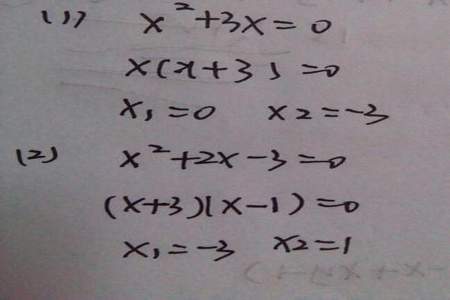 (1) x²+3x=0
x(x+3)=0
x₁=0 x₂=-3
(2) x²+2x-3=0
(x+3)(x-1)=0
x₁=-3 x₂=1